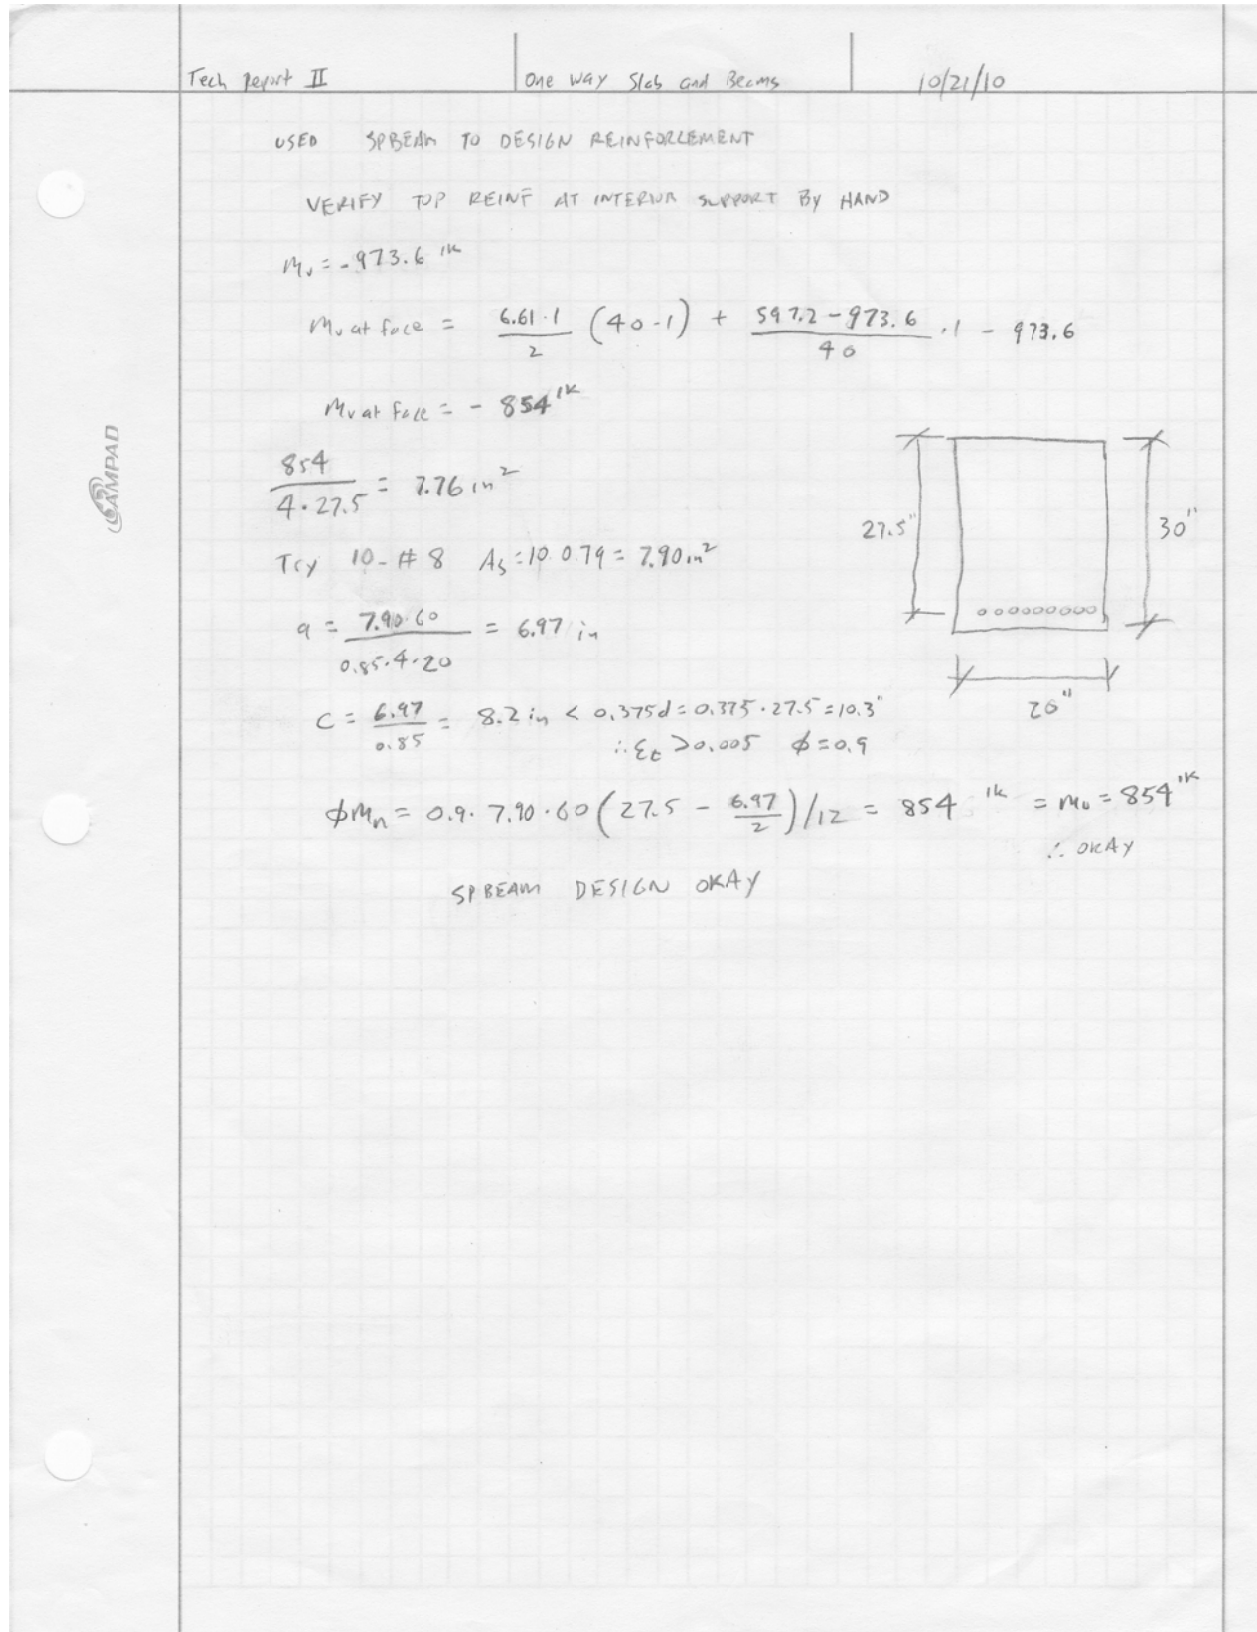 Tech Report II One Way Slab and Beams 10/21/10
USED SPBEAM TO DESIGN REINFORCEMENT
VERIFY TOP REINF AT INTERIOR SUPPORT BY HAND
Mu = -973.6 'K
Mu at face = 6.61·1/2 (40-1) + 597.2-973.6/40 ·1 - 973.6
Mu at face = - 854 'K
854/4·27.5 = 7.76 in²
Try 10-#8 As = 10·0.79 = 7.90 in²
27.5"
30"
a = 7.90·60/0.85·4·20 = 6.97 in
20"
c = 6.97/0.85 = 8.2 in < 0.375d = 0.375·27.5 = 10.3"
∴ εt > 0.005 φ = 0.9
φMn = 0.9·7.90·60(27.5 - 6.97/2)/12 = 854 'K = Mu = 854 'K
∴ OKAY
SPBEAM DESIGN OKAY
AMPAD